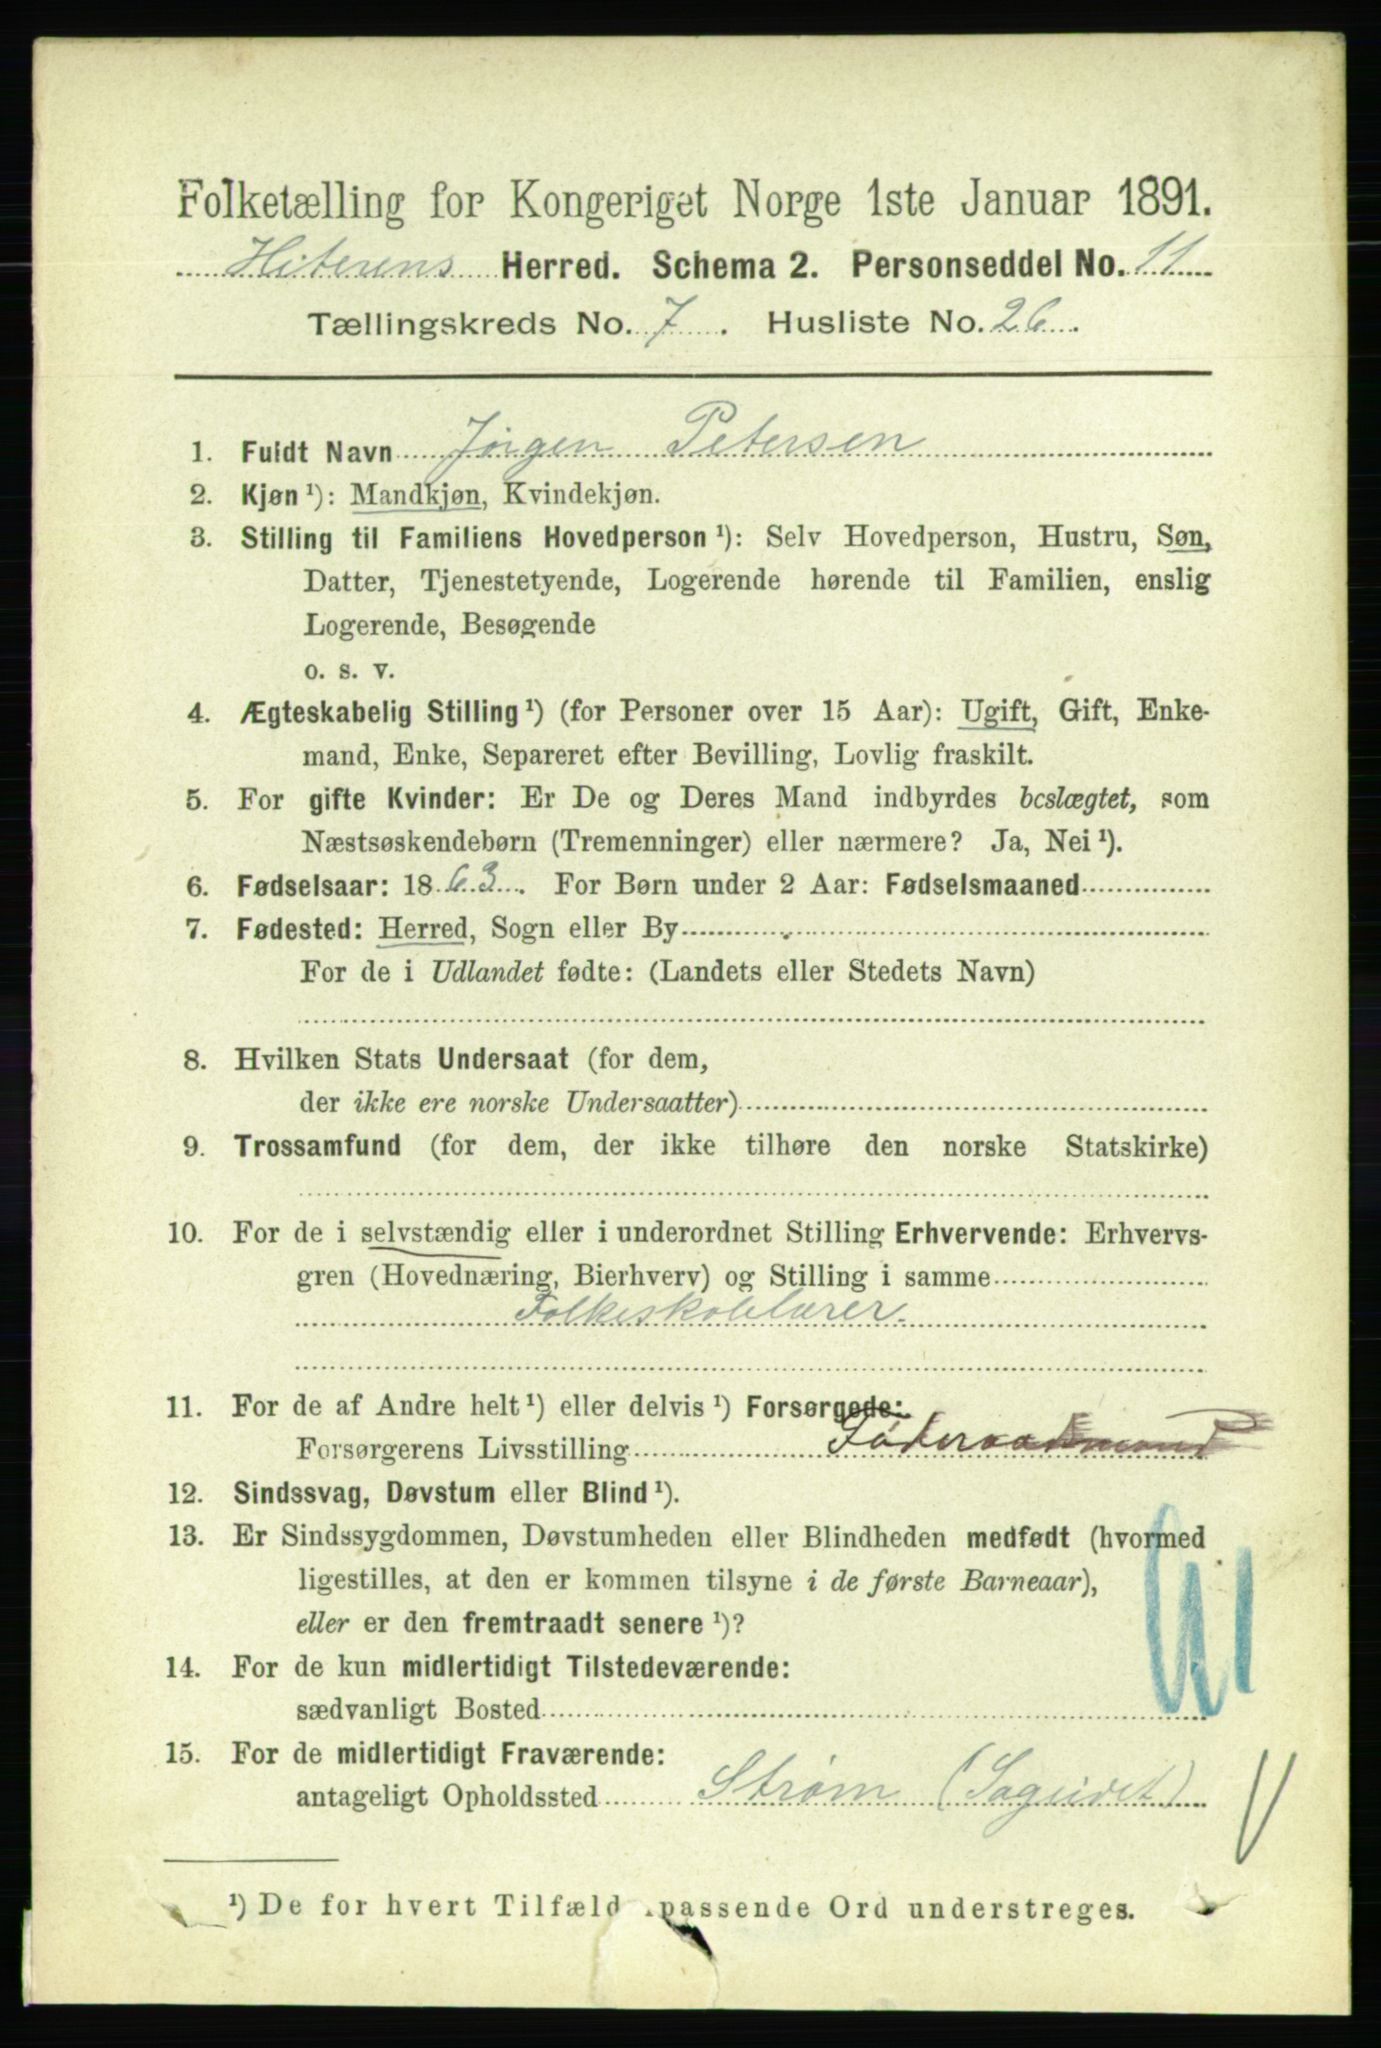 Folketælling for Kongeriget Norge 1ste Januar 1891.
Hiterens Herred. Schema 2. Personseddel No. 11
Tællingskreds No. 7. Husliste No. 26.
1. Fuldt Navn Jørgen Petersen
2. Kjøn ¹): Mandkjøn, Kvindekjøn.
3. Stilling til Familiens Hovedperson ¹): Selv Hovedperson, Hustru, Søn,
Datter, Tjenestetyende, Logerende hørende til Familien, enslig
Logerende, Besøgende
o. s. v.
4. Ægteskabelig Stilling ¹) (for Personer over 15 Aar): Ugift, Gift, Enke-
mand, Enke, Separeret efter Bevilling, Lovlig fraskilt.
5. For gifte Kvinder: Er De og Deres Mand indbyrdes beslægtet, som
Næstsøskendebørn (Tremenninger) eller nærmere? Ja, Nei ¹).
6. Fødselsaar: 1863. For Børn under 2 Aar: Fødselsmaaned
7. Fødested: Herred, Sogn eller By
For de i Udlandet fødte: (Landets eller Stedets Navn)
8. Hvilken Stats Undersaat (for dem,
der ikke ere norske Undersaatter)
9. Trossamfund (for dem, der ikke tilhøre den norske Statskirke)
10. For de i selvstændig eller i underordnet Stilling Erhvervende: Erhvervs-
gren (Hovednæring, Bierhverv) og Stilling i samme
Folkeskolelærer.
11. For de af Andre helt ¹) eller delvis ¹) Forsørgede:
Forsørgerens Livsstilling Føderaadmand
12. Sindssvag, Døvstum eller Blind ¹).
13. Er Sindssygdommen, Døvstumheden eller Blindheden medfødt (hvormed
ligestilles, at den er kommen tilsyne i de første Barneaar),
eller er den fremtraadt senere ¹)?
14. For de kun midlertidigt Tilstedeværende:
sædvanligt Bosted
15. For de midlertidigt Fraværende:
antageligt Opholdssted Strøm
¹) De for hvert Tilfæld passende Ord understreges.